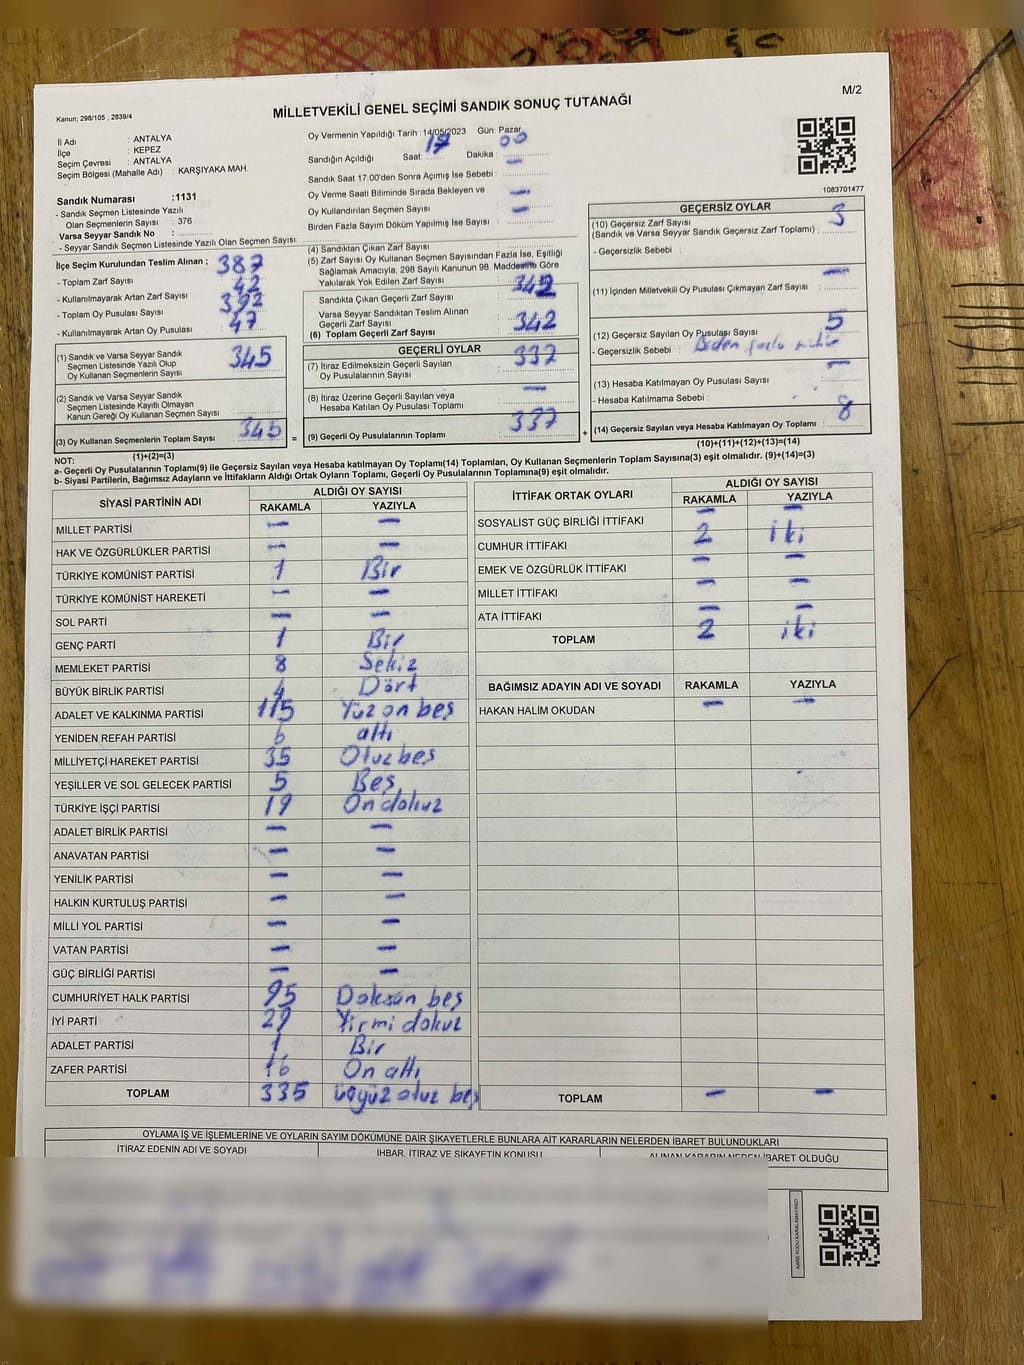 M/2
Kanun; 298/105 , 2839/4
MİLLETVEKİLİ GENEL SEÇİMİ SANDIK SONUÇ TUTANAĞI
İl Adı : ANTALYA
İlçe : KEPEZ
Seçim Çevresi : ANTALYA
Seçim Bölgesi (Mahalle Adı) : KARŞIYAKA MAH.
Sandık Numarası :1131
- Sandık Seçmen Listesinde Yazılı
Olan Seçmenlerin Sayısı : 376
Varsa Seyyar Sandık No :
- Seyyar Sandık Seçmen Listesinde Yazılı Olan Seçmen Sayısı:
Oy Vermenin Yapıldığı Tarih : 14/05/2023 Gün: Pazar
Sandığın Açıldığı Saat: 17 Dakika : 00
Sandık Saat 17:00'den Sonra Açımış İse Sebebi : —
Oy Verme Saati Bitiminde Sırada Bekleyen ve
Oy Kullandırılan Seçmen Sayısı : —
Birden Fazla Sayım Döküm Yapılmış İse Sayısı : —
1083701477
İlçe Seçim Kurulundan Teslim Alınan ;
- Toplam Zarf Sayısı : 387
- Kullanılmayarak Artan Zarf Sayısı : 42
- Toplam Oy Pusulası Sayısı : 392
- Kullanılmayarak Artan Oy Pusulası : 47
(1) Sandık ve Varsa Seyyar Sandık
Seçmen Listesinde Yazılı Olup
Oy Kullanan Seçmenlerin Sayısı : 345
(2) Sandık ve Varsa Seyyar Sandık
Seçmen Listesinde Kayıtlı Olmayan
Kanun Gereği Oy Kullanan Seçmen Sayısı :
(3) Oy Kullanan Seçmenlerin Toplam Sayısı : 345
(1)+(2)=(3)
(4) Sandıktan Çıkan Zarf Sayısı :
(5) Zarf Sayısı Oy Kullanan Seçmen Sayısından Fazla İse, Eşitliği
Sağlamak Amacıyla, 298 Sayılı Kanunun 98. Maddesine Göre
Yakılarak Yok Edilen Zarf Sayısı : —
Sandıkta Çıkan Geçerli Zarf Sayısı : 342
Varsa Seyyar Sandıktan Teslim Alınan
Geçerli Zarf Sayısı :
(6) Toplam Geçerli Zarf Sayısı : 342
GEÇERLİ OYLAR
(7) İtiraz Edilmeksizin Geçerli Sayılan
Oy Pusulalarının Sayısı : 337
(8) İtiraz Üzerine Geçerli Sayılan veya
Hesaba Katılan Oy Pusulası Toplamı : —
= (9) Geçerli Oy Pusulalarının Toplamı : 337
GEÇERSİZ OYLAR
(10) Geçersiz Zarf Sayısı
(Sandık ve Varsa Seyyar Sandık Geçersiz Zarf Toplamı) : 3
- Geçersizlik Sebebi :
(11) İçinden Milletvekili Oy Pusulası Çıkmayan Zarf Sayısı : —
(12) Geçersiz Sayılan Oy Pusulası Sayısı : 5
- Geçersizlik Sebebi : Birden fazla mühür
(13) Hesaba Katılmayan Oy Pusulası Sayısı : —
- Hesaba Katılmama Sebebi :
+ (14) Geçersiz Sayılan veya Hesaba Katılmayan Oy Toplamı : 8
(10)+(11)+(12)+(13)=(14)
NOT:
a- Geçerli Oy Pusulalarının Toplamı(9) ile Geçersiz Sayılan veya Hesaba katılmayan Oy Toplamı(14) Toplamları, Oy Kullanan Seçmenlerin Toplam Sayısına(3) eşit olmalıdır. (9)+(14)=(3)
b- Siyasi Partilerin, Bağımsız Adayların ve İttifakların Aldığı Ortak Oyların Toplamı, Geçerli Oy Pusulalarının Toplamına(9) eşit olmalıdır.
SİYASİ PARTİNİN ADI ALDIĞI OY SAYISI
RAKAMLA YAZIYLA
MİLLET PARTİSİ — —
HAK VE ÖZGÜRLÜKLER PARTİSİ — —
TÜRKİYE KOMÜNİST PARTİSİ 1 Bir
TÜRKİYE KOMÜNİST HAREKETİ — —
SOL PARTİ — —
GENÇ PARTİ 1 Bir
MEMLEKET PARTİSİ 8 Sekiz
BÜYÜK BİRLİK PARTİSİ 4 Dört
ADALET VE KALKINMA PARTİSİ 115 Yüz on beş
YENİDEN REFAH PARTİSİ 6 altı
MİLLİYETÇİ HAREKET PARTİSİ 35 Otuz beş
YEŞİLLER VE SOL GELECEK PARTİSİ 5 Beş
TÜRKİYE İŞÇİ PARTİSİ 19 On dokuz
ADALET BİRLİK PARTİSİ — —
ANAVATAN PARTİSİ — —
YENİLİK PARTİSİ — —
HALKIN KURTULUŞ PARTİSİ — —
MİLLİ YOL PARTİSİ — —
VATAN PARTİSİ — —
GÜÇ BİRLİĞİ PARTİSİ — —
CUMHURİYET HALK PARTİSİ 95 Doksan beş
İYİ PARTİ 29 Yirmi dokuz
ADALET PARTİSİ 1 Bir
ZAFER PARTİSİ 16 On altı
TOPLAM 335 üçyüz otuz beş
İTTİFAK ORTAK OYLARI ALDIĞI OY SAYISI
RAKAMLA YAZIYLA
SOSYALİST GÜÇ BİRLİĞİ İTTİFAKI — —
CUMHUR İTTİFAKI 2 iki
EMEK VE ÖZGÜRLÜK İTTİFAKI — —
MİLLET İTTİFAKI — —
ATA İTTİFAKI — —
TOPLAM 2 iki
BAĞIMSIZ ADAYIN ADI VE SOYADI RAKAMLA YAZIYLA
HAKAN HALİM OKUDAN — —
TOPLAM — —
OYLAMA İŞ VE İŞLEMLERİNE VE OYLARIN SAYIM DÖKÜMÜNE DAİR ŞİKAYETLERLE BUNLARA AİT KARARLARIN NELERDEN İBARET BULUNDUKLARI
İTİRAZ EDENİN ADI VE SOYADI İHBAR, İTİRAZ VE ŞİKAYETİN KONUSU ALINAN KARARIN NEDEN İBARET OLDUĞU
KARE KODU KARALAMAYINIZ!